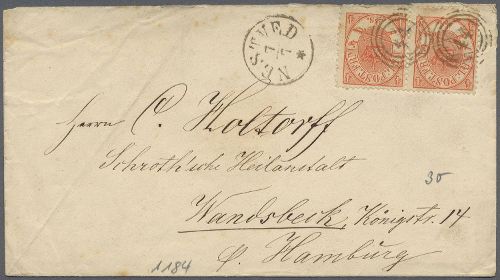 NESTVED
Herrn C. Holtorff
Schroth'sche Heilanstalt
30
Wandsbeck, Königstr. 14
p. Hamburg
1184